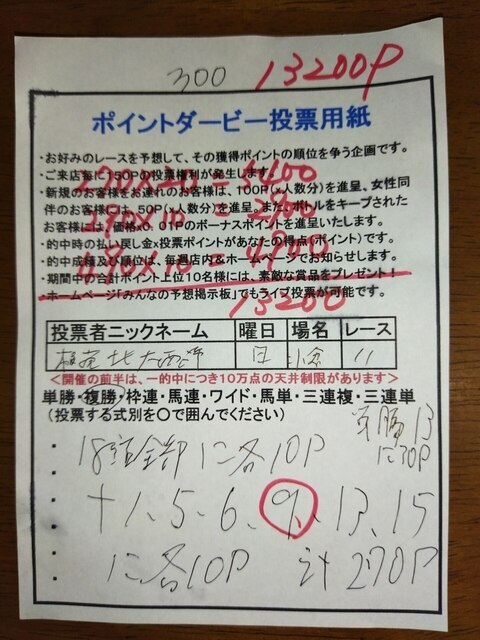 300 13200P
ポイントダービー投票用紙
・お好みのレースを予想して、その獲得ポイントの順位を争う企画です。
・ご来店毎に150Pの投票権利が発生します。
・新規のお客様をお連れのお客様は、100P(×人数分)を進呈、女性同
伴のお客様には、50P(×人数分)を進呈。また、ボトルをキープされた
お客様には、価格×0.01Pのボーナスポイントを進呈いたします。
・的中時の払い戻し金×投票ポイントがあなたの得点(ポイント)です。
・的中成績及び順位は、毎週店内&ホームページでお知らせします。
・期間中の合計ポイント上位10名様には、素敵な賞品をプレゼント!
・ホームページ「みんなの予想掲示板」でもライブ投票が可能です。
290×10=2900
490×10=4900
13200
投票者ニックネーム 曜日 場名 レース
日 小倉 11
<開催の前半は、一的中につき10万点の天井制限があります>
単勝・複勝・枠連・馬連・ワイド・馬単・三連複・三連単
(投票する式別を〇で囲んでください)
単勝13
に30P
18頭全部に各10P
+1、5、6、9、13、15
に各10P 計270P